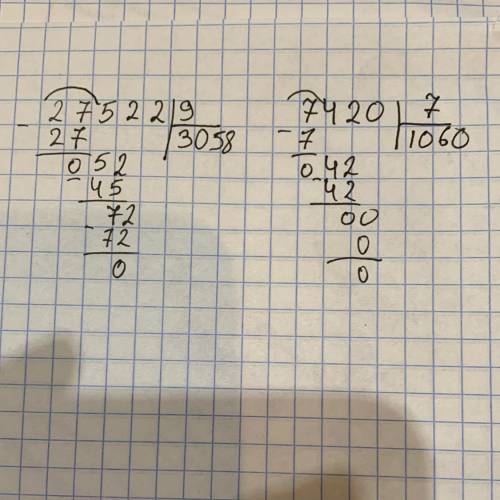 - 27522 | 9
27 | 3058
- 052
45
- 72
72
0
- 7420 | 7
7 | 1060
- 042
42
00
0
0